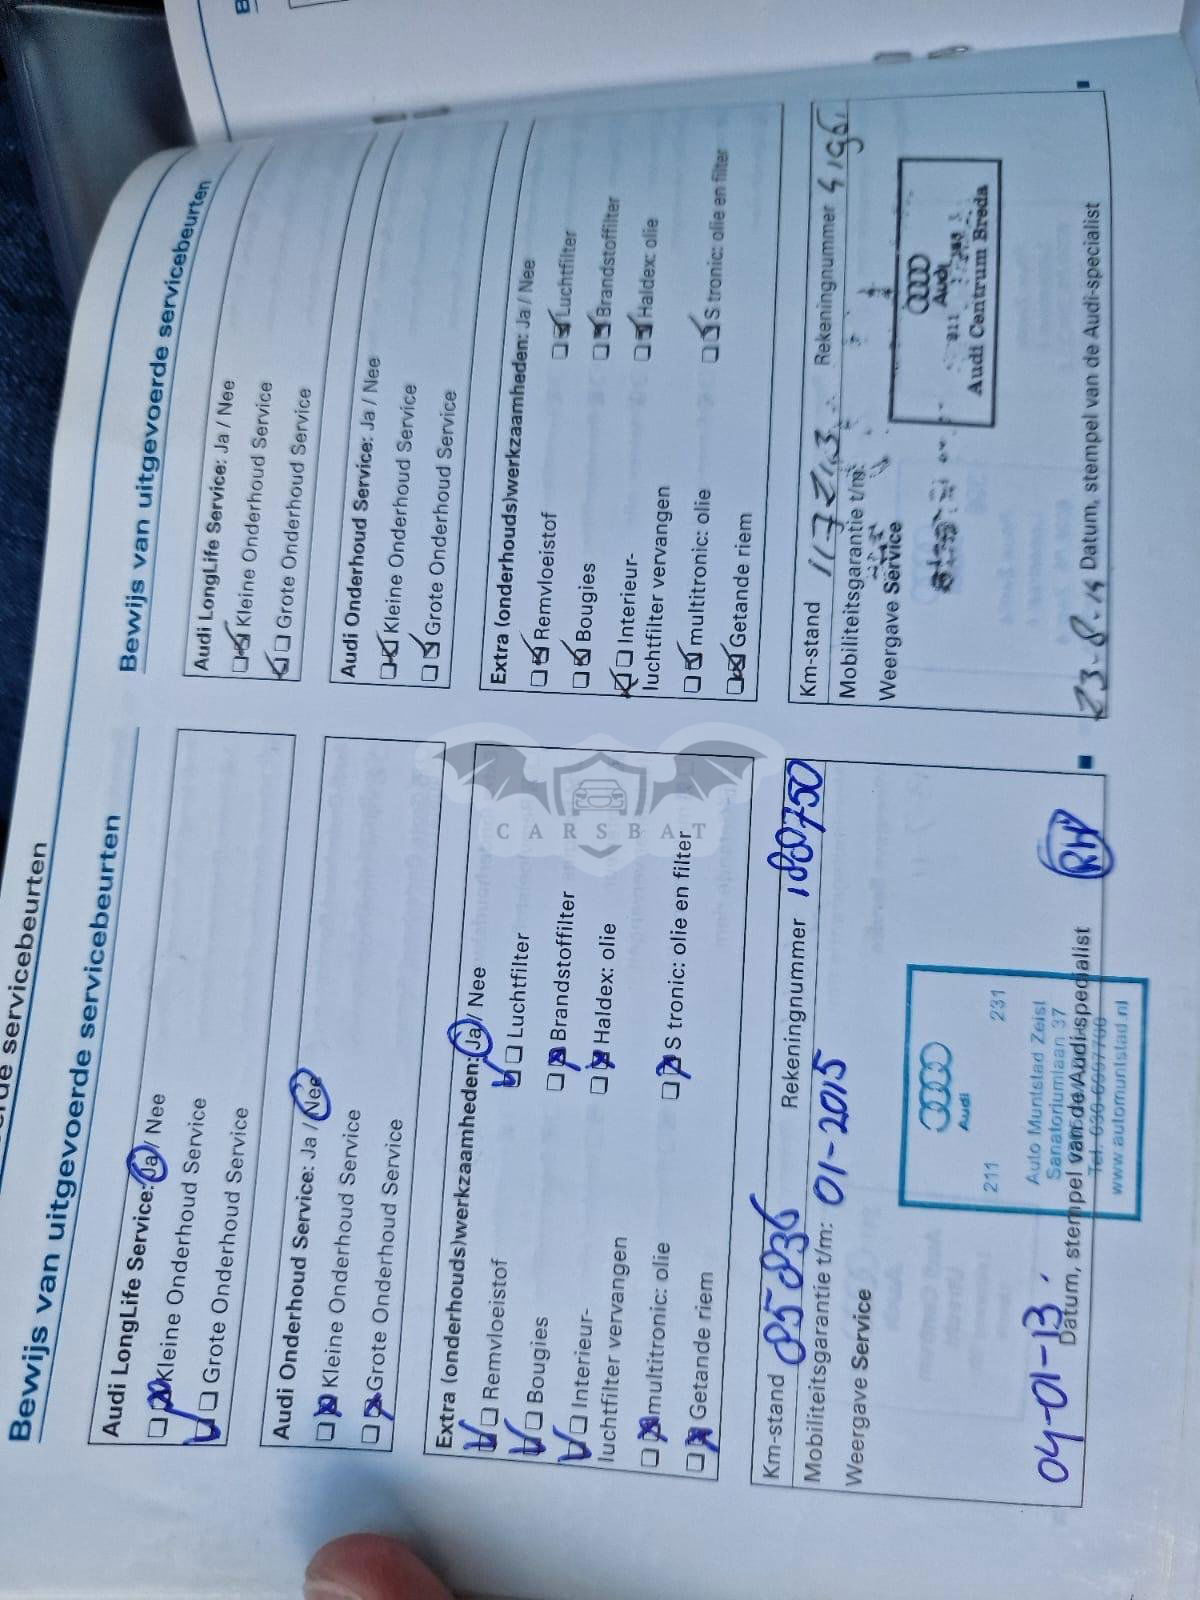 erde servicebeurten
Bewijs van uitgevoerde servicebeurten
Audi LongLife Service: Ja / Nee
Kleine Onderhoud Service
Grote Onderhoud Service
Audi Onderhoud Service: Ja / Nee
Kleine Onderhoud Service
Grote Onderhoud Service
Extra (onderhouds)werkzaamheden: Ja / Nee
Remvloeistof Luchtfilter
Bougies Brandstoffilter
Interieur- Haldex: olie
luchtfilter vervangen
multitronic: olie S tronic: olie en filter
Getande riem
Km-stand 85836 Rekeningnummer 1880750
Mobiliteitsgarantie t/m: 01-2015
Weergave Service
Audi
211 231
Auto Muntstad Zeist
Sanatoriumlaan 37
www.automuntstad.nl
04-01-13.
Datum, stempel van de Audi-specialist
Bewijs van uitgevoerde servicebeurten
Audi LongLife Service: Ja / Nee
Kleine Onderhoud Service
Grote Onderhoud Service
Audi Onderhoud Service: Ja / Nee
Kleine Onderhoud Service
Grote Onderhoud Service
Extra (onderhouds)werkzaamheden: Ja / Nee
Remvloeistof Luchtfilter
Bougies Brandstoffilter
Interieur- Haldex: olie
luchtfilter vervangen
multitronic: olie S tronic: olie en filter
Getande riem
Km-stand 117213 Rekeningnummer
Mobiliteitsgarantie t/m:
Weergave Service
Audi
Audi Centrum Breda
23-8-14 Datum, stempel van de Audi-specialist
CARSBAT